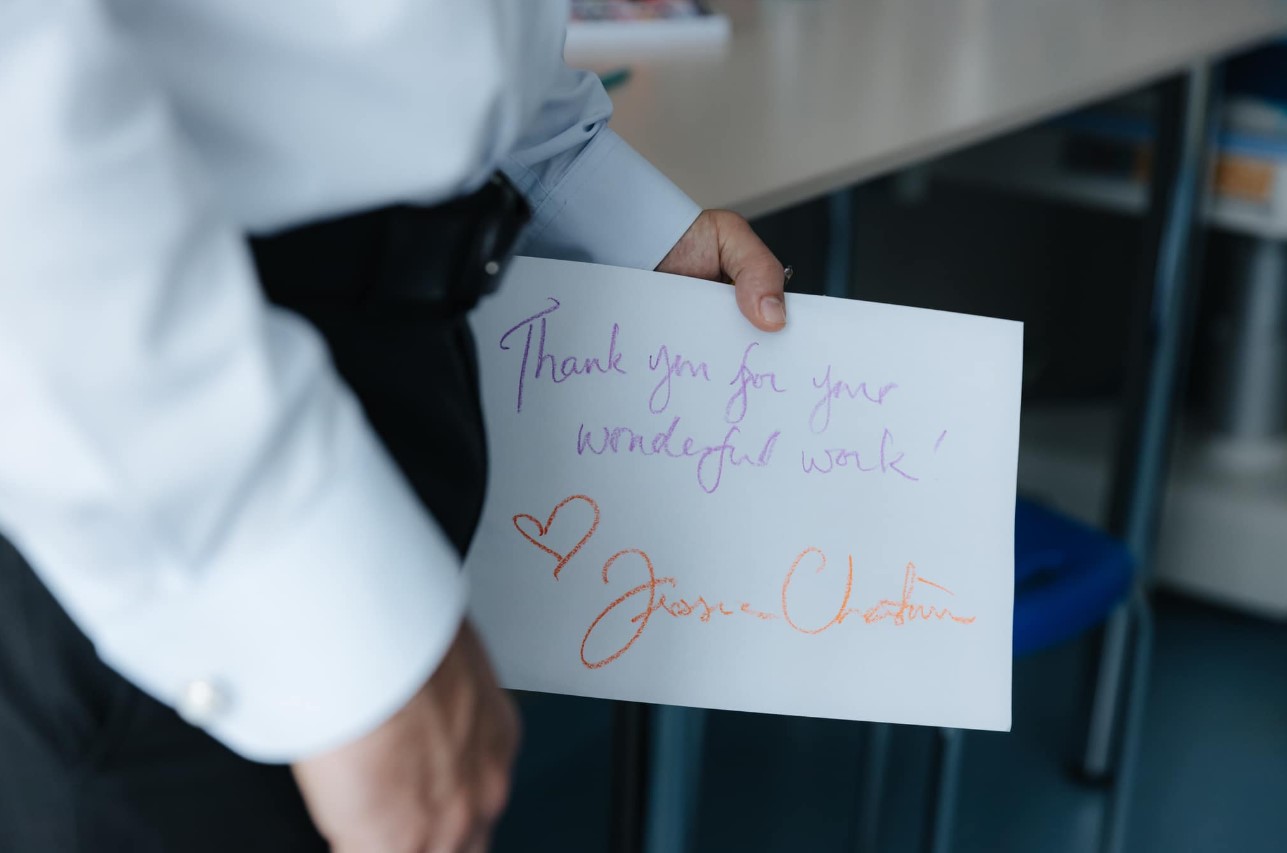 Thank you for your
wonderful work!
♡ Jessica Chastain